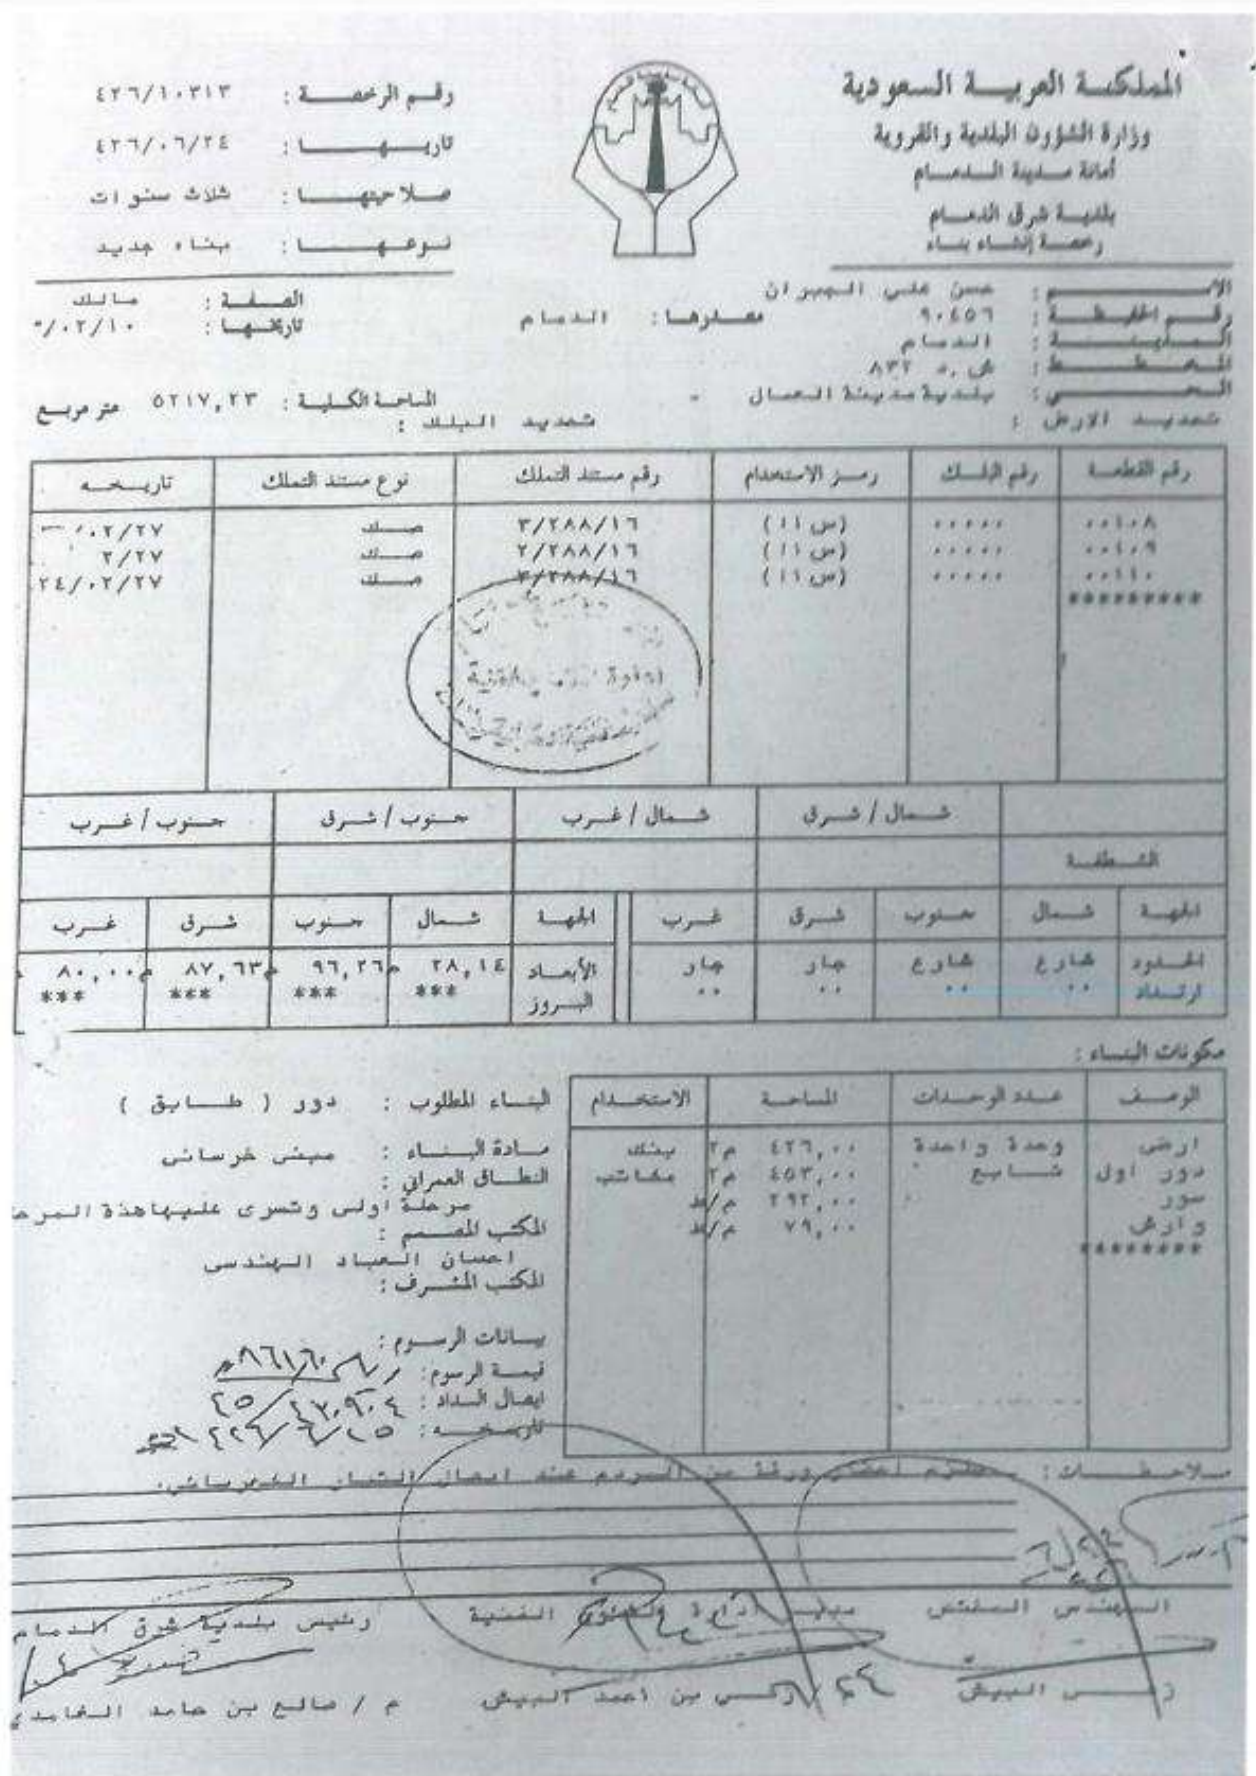 المملكة العربية السعودية
وزارة الشؤون البلدية والقروية
أمانة مدينة الدمام
بلدية شرق الدمام
رخصة إنشاء بناء
رقم الرخصة : ٤٢٦/١٠٣١٣
تاريخها : ٤٢٦/٠٦/٢٤
صلاحيتها : ثلاث سنوات
نوعها : بناء جديد
الاسم : حسن علي الجبران
الصفة : مالك
رقم الحفيظة : ٩٠٤٥٦ مصدرها : الدمام تاريخها : ٠٢/١٠/
المدينة : الدمام
المخطط : ش.د ٨٣٢
الحي : بلدية مدينة العمال - المساحة الكلية : ٥٢١٧,٢٣ متر مربع
تحديد الارض : تحديد البلك :
رقم القطعة رقم البلك رمز الاستخدام رقم مستند التملك نوع مستند التملك تاريخه
٠٠١٠٨ ٠٠٠٠٠ (س ١١) ٣/٢٨٨/١٦ صك ٠٢/٢٧/
٠٠١٠٩ ٠٠٠٠٠ (س ١١) ٢/٢٨٨/١٦ صك ٢/٢٧
٠٠١١٠ ٠٠٠٠٠ (س ١١) ٣/٢٨٨/١٦ صك ٢٤/٠٢/٢٧
*********
شمال/شرق شمال/غرب جنوب/شرق جنوب/غرب
الشطفة
الجهة شمال جنوب شرق غرب الجهة شمال جنوب شرق غرب
الحدود شارع شارع جار جار الأبعاد ٢٨,١٤م ٩٦,٢٦م ٨٧,٦٣م ٨٠,٠٠
ارتداد ٠٠ ٠٠ ٠٠ ٠٠ البروز *** *** *** ***
مكونات البناء :
الوصف عدد الوحدات المساحة الاستخدام
ارضي وحدة واحدة ٤٢٦,٠٠ م٢ بنك
دور اول شايع ٤٥٣,٠٠ م٢ مكاتب
سور ٢٩٢,٠٠ م/ط
وارش ٧٩,٠٠ م/ط
********
البناء المطلوب : دور ( طابق )
مادة البناء : مبنى خرسانى
النطاق العمراني :
مرحلة اولى وتسرى عليها هذة المرح
المكتب المصمم :
احسان العباد الهندسى
المكتب المشرف :
بيانات الرسوم :
قيمة الرسوم :
ايصال السداد :
تاريخه :
ملاحظات : يلتزم احضار ورقة من المرور عند ايصال التيار الكهربائى.
المهندس المختص مدير ادارة الشئون الفنية رئيس بلدية شرق الدمام
زكي البيش زكي بن أحمد البيش م / صالح بن حامد الغامدي